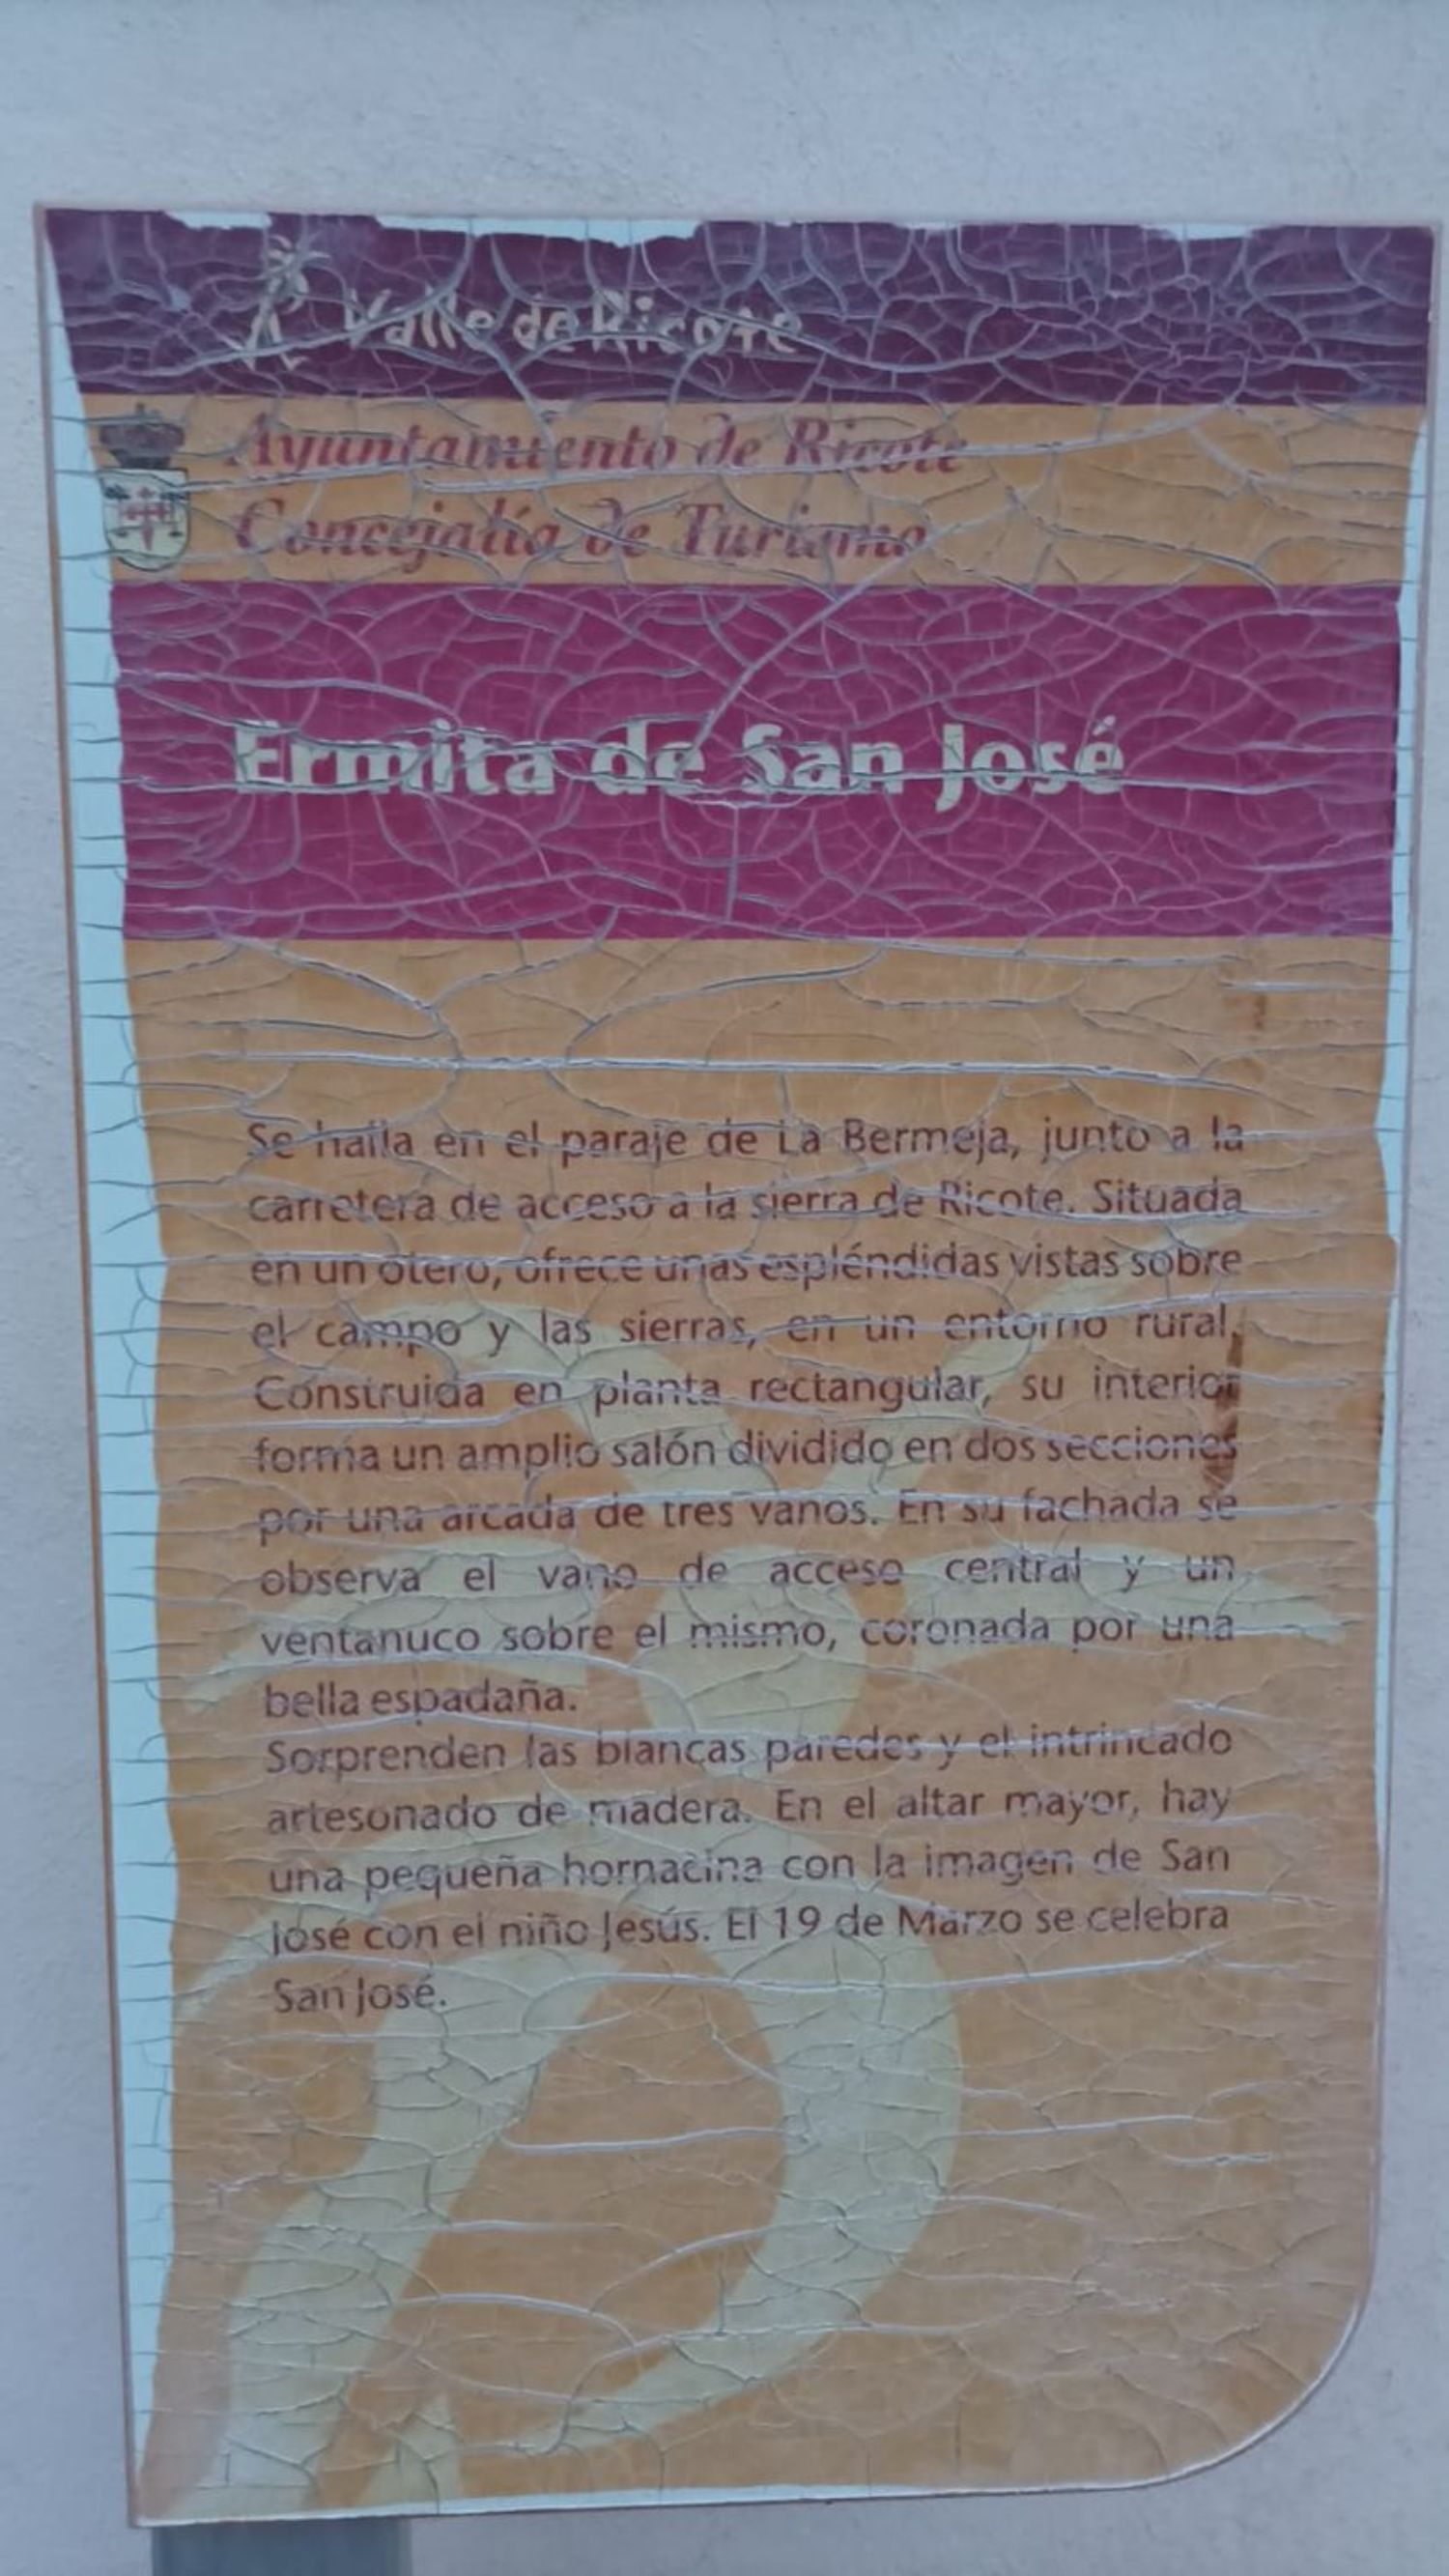 Valle de Ricote
Ayuntamiento de Ricote
Concejalía de Turismo
Ermita de San José
Se halla en el paraje de La Bermeja, junto a la
carretera de acceso a la sierra de Ricote. Situada
en un otero, ofrece unas espléndidas vistas sobre
el campo y las sierras, en un entorno rural.
Construida en planta rectangular, su interior
forma un amplio salón dividido en dos secciones
por una arcada de tres vanos. En su fachada se
observa el vano de acceso central y un
ventanuco sobre el mismo, coronada por una
bella espadaña.
Sorprenden las blancas paredes y el intrincado
artesonado de madera. En el altar mayor, hay
una pequeña hornacina con la imagen de San
José con el niño Jesús. El 19 de Marzo se celebra
San José.